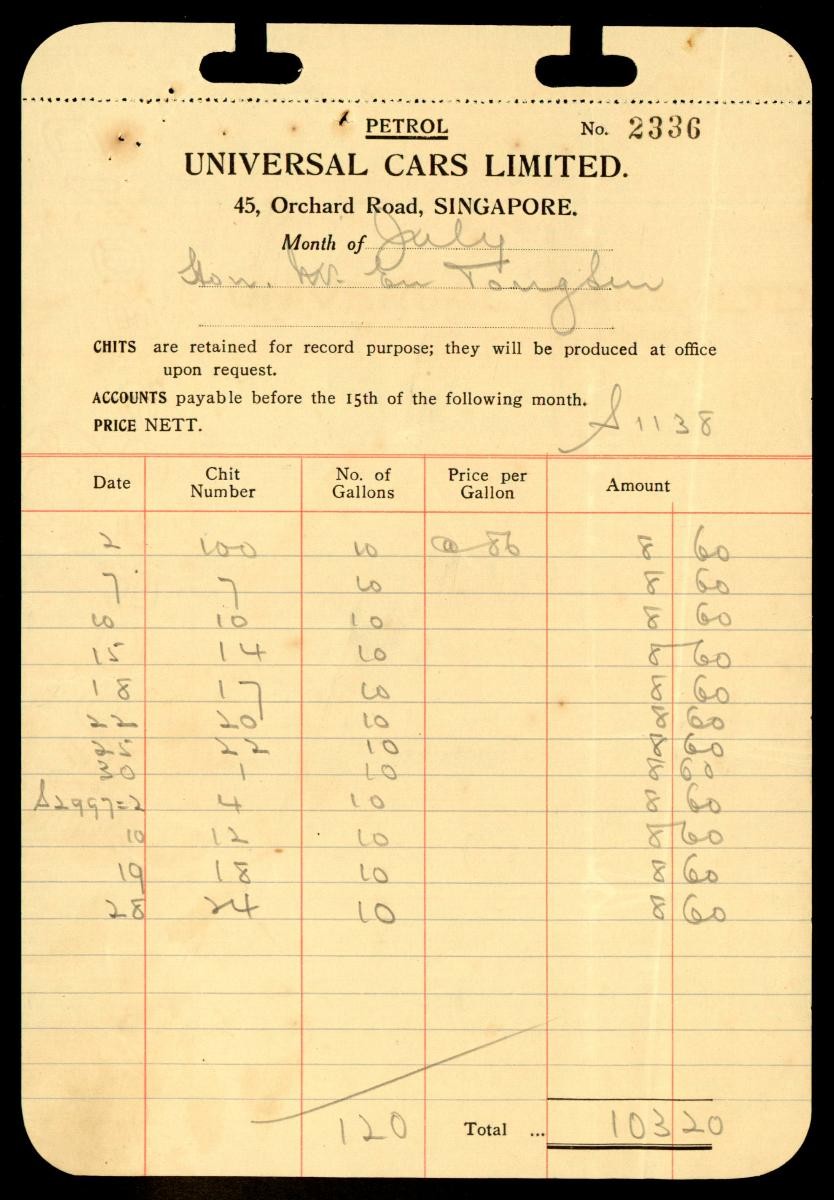 PETROL No. 2336
UNIVERSAL CARS LIMITED.
45, Orchard Road, SINGAPORE.
Month of July
Hon. Mr. Eu Tong Sen
CHITS are retained for record purpose; they will be produced at office
upon request.
ACCOUNTS payable before the 15th of the following month.
PRICE NETT.
S1138
Date Chit Number No. of Gallons Price per Gallon Amount
2 100 10 @ 86 8 60
7 7 10 8 60
10 10 10 8 60
15 14 10 8 60
18 17 10 8 60
22 20 10 8 60
25 22 10 8 60
30 1 10 8 60
S2997=2 4 10 8 60
10 12 10 8 60
19 18 10 8 60
28 24 10 8 60
120 Total ... 103 20